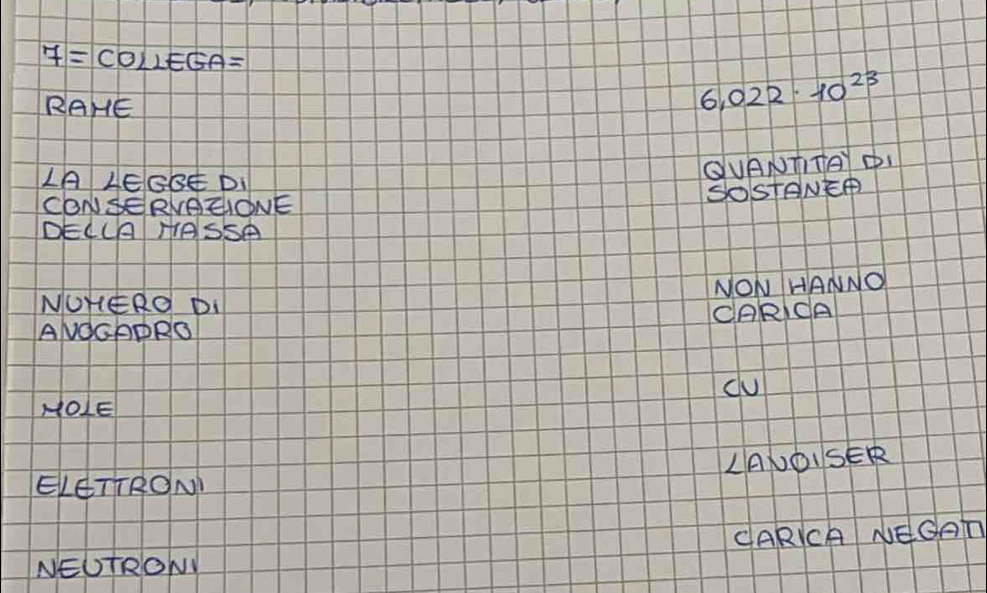 7 = COLLEGA =
RAME
6,022 · 10²³
LA LEGGE DI
CONSERVAZIONE
DELLA MASSA
QUANTITA' DI
SOSTANZA
NUMERO DI
AVOGADRO
NON HANNO
CARICA
MOLE
CU
ELETTRONI
LAVOISER
NEUTRONI
CARICA NEGATI